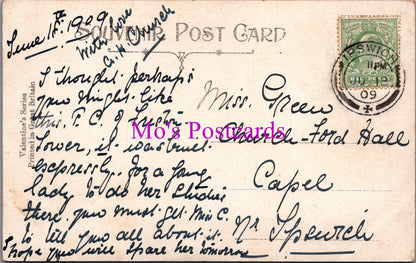 June 18th 1909
With love
SOUVENIR POST CARD
I thought perhaps
you might like
this P.C. of Freston
Tower, it was built
expressly for a young
lady to do her studies
there, you must get Miss C.
to tell you all about it.
I hope you will spare her tomorrow
Miss Green
Church-Ford Hall
Capel
Nr Ipswich
IPSWICH
11 PM
JU 18
09
Valentine's Series
Printed in Great Britain
Mo's Postcards